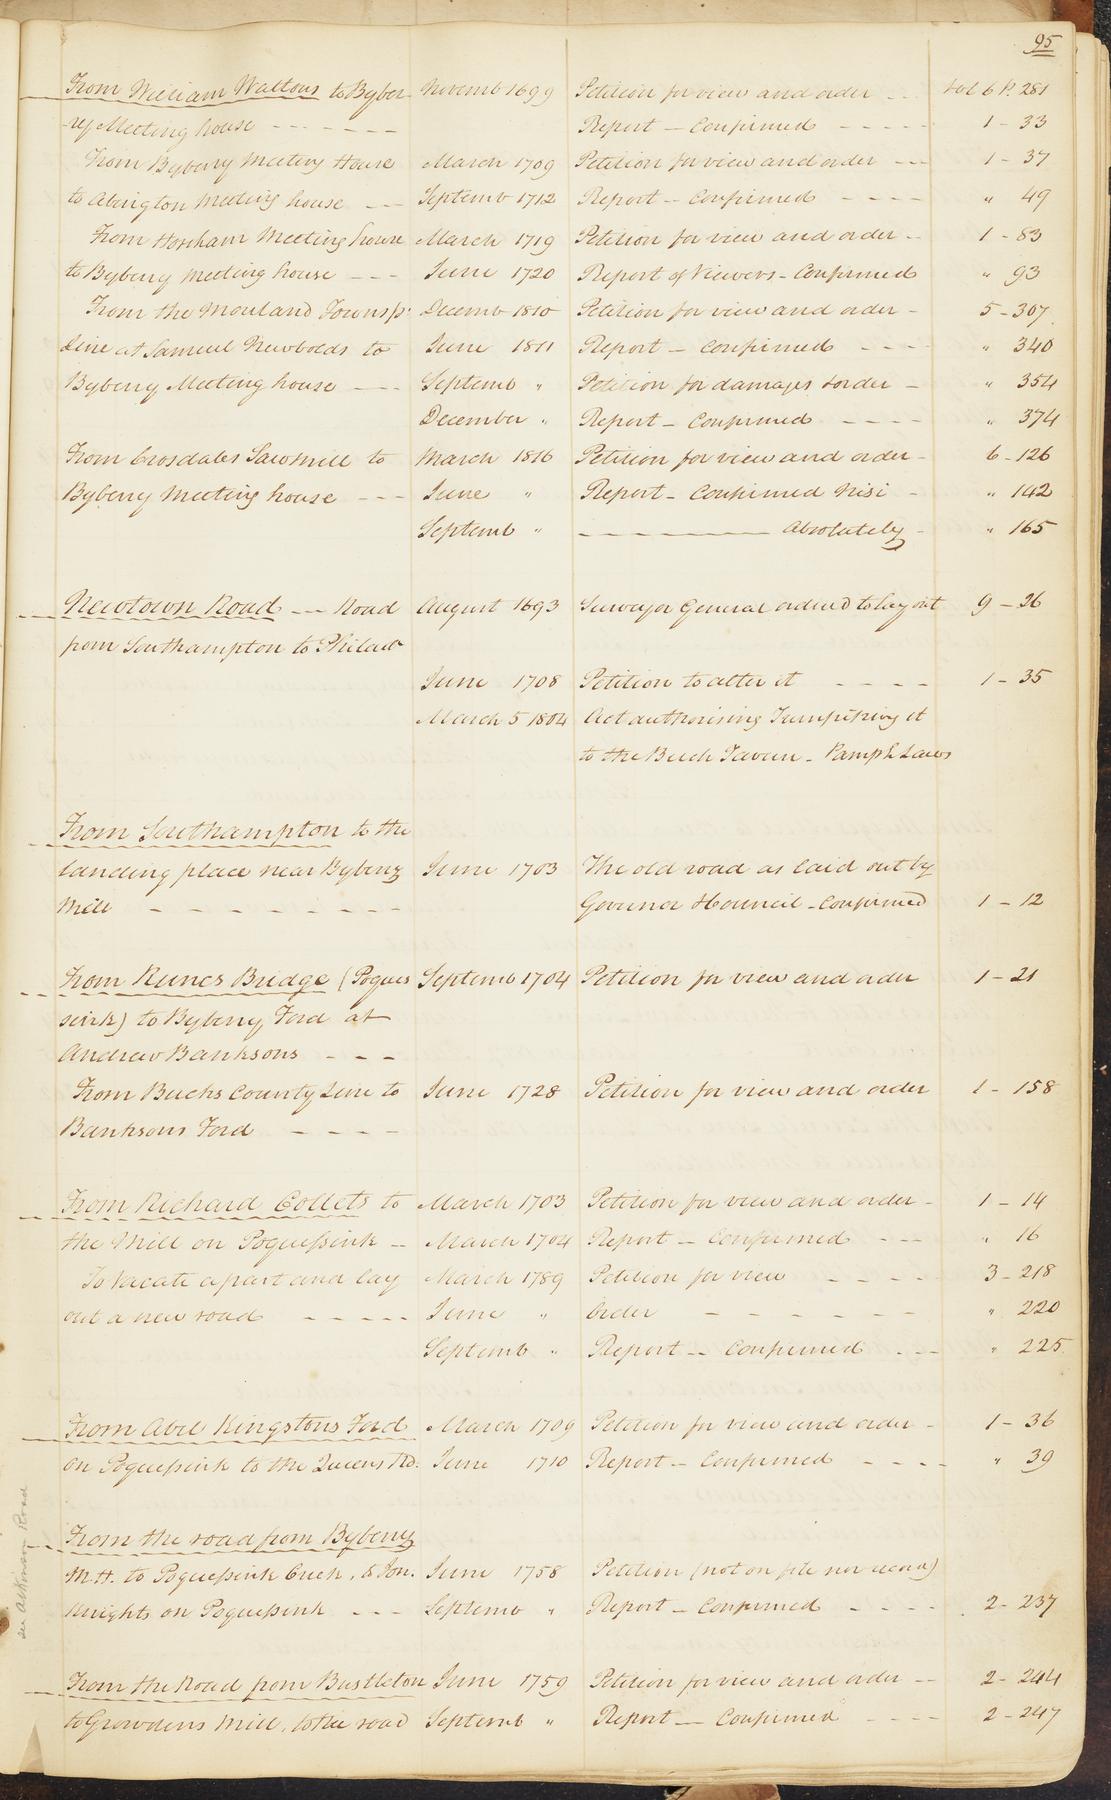 95
From William Waltons to Byber- Novemb 1699 Petition for view and order --- Vol 6 P. 281
-ry Meeting house ------- Report — Confirmed ----- 1 - 33
From Byberry Meeting House March 1709 Petition for view and order --- 1 - 37
to Abington Meeting house --- Septemb 1712 Report -- Confirmed ---- " 49
From Horsham Meeting house March 1719 Petition for view and order -- 1 - 83
to Byberry Meeting house --- June 1720 Report of Viewers - Confirmed " 93
From the Moreland Townsp. Decemb 1810 Petition for view and order - 5 - 307
Line at Samuel Newbolds to June 1811 Report — Confirmed ---- " 340
Byberry Meeting house --- Septemb " Petition for damages & order - " 354
December " Report - Confirmed ---- " 374
From Crosdales Sawmill to March 1816 Petition for view and order - 6 - 126
Byberry Meeting house --- June " Report - Confirmed Nisi - " 142
Septemb " ---------- Absolutely - " 165
Newtown Road --- Road August 1693 Surveyor General ordered to lay out 9 - 26
from Southampton to Philada
June 1708 Petition to alter it ---- 1 - 35
March 5 1804 Act authorising Turnpiking it
to the Buck Tavern - Pamph Laws
From Southampton to the
landing place near Byberry June 1703 The old road as laid out by
Mill --------- Governor & Council - Confirmed 1 - 12
From Runcs Bridge (Poques Septemb 1704 Petition for view and order 1 - 21
sink) to Byberry Ford at
Andrew Banksons ---
From Bucks County Line to June 1728 Petition for view and order 1 - 158
Banksons Ford ----
From Richard Collets to March 1703 Petition for view and order - 1 - 14
the Mill on Poquessink -- March 1704 Report — Confirmed --- " 16
To Vacate a part and lay March 1789 Petition for view ---- 3 - 218
out a new road ----- June " Order ------ " 220
Septemb " Report -- Confirmed --- " 225
From Abel Kingstons Ford March 1709 Petition for view and order - 1 - 36
on Poquessink to the Queens Rd. June 1710 Report -- Confirmed ---- " 39
From the road from Byberry
M.H. to Poquessink Creek, & Jon. June 1758 Petition (not on file nor record)
Knights on Poquessink --- Septemb " Report — Confirmed ---- 2 - 237
see Atkinson Road
From the Road from Bustleton June 1759 Petition for view and order -- 2 - 244
to Growdens Mill, to the road Septemb " Report — Confirmed ---- 2 - 247